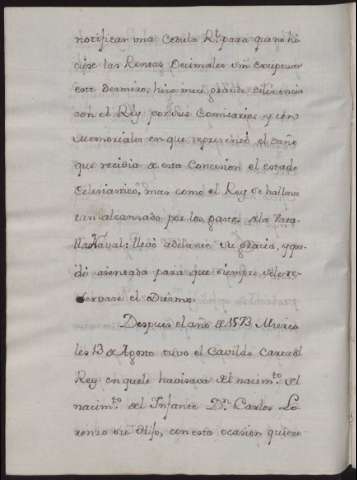 notificar una Cedula Rl para que no hi
ciese las Rentas Decimales sin exceptuar
este Dezmero, hizo mui grande diferencia
con el Rey por sus Comisarios y con
Memoriales en que representó el daño
que recibia de esta Concesion el estado
Eclesiastico, mas como el Rey se hallava
tan alcansado por los gastos de la Bata
lla Naval: llevó adelante su gracia, y que
dó asentada para que siempre se le re-
servase el Diezmo.
Despues el año de 1573 Mierco
les 13 de Agosto tuvo el Cavildo Carta del
Rey en que le havisava del nacim.to del
nacim.to del Infante D.n Carlos Lo
renzo su Hijo, con esta ocasion quiere